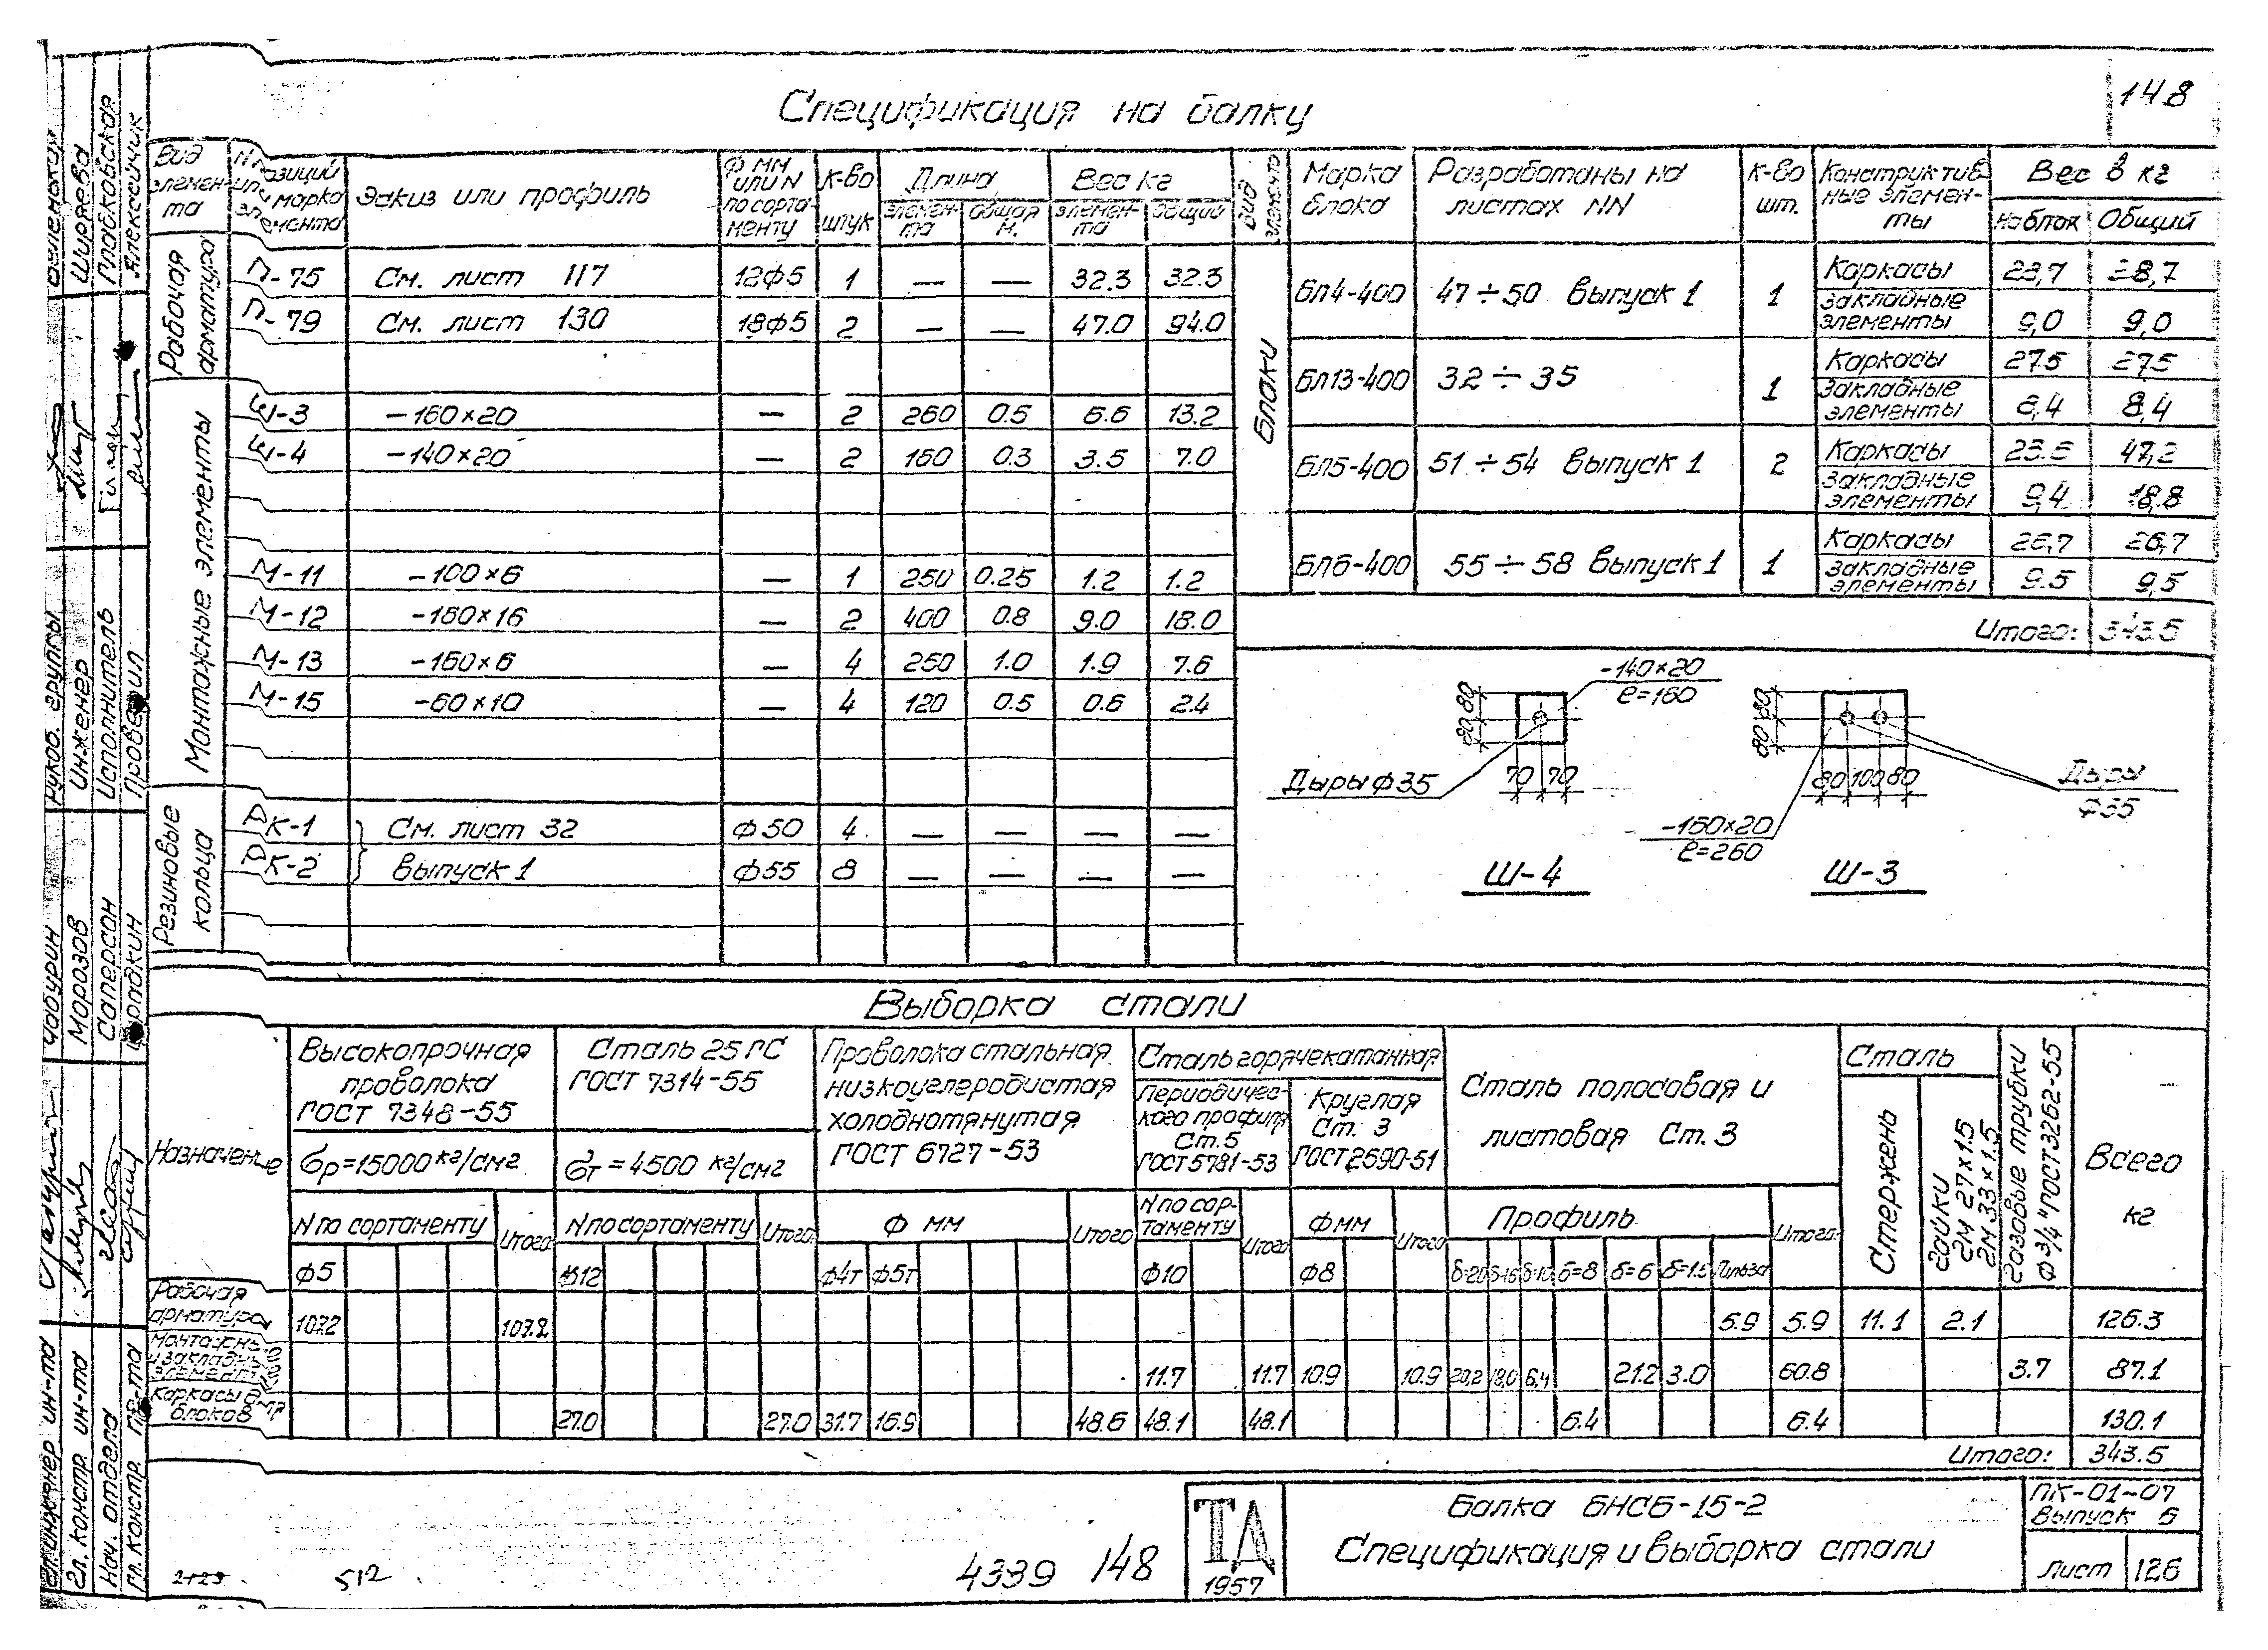 148
Спецификация на балку
Вид элемента | N позиций или марка элемента | Эскиз или профиль | Ф мм или N по сортаменту | К-во штук | Длина элемента | Длина общая м. | Вес кг элемента | Вес кг общий
Рабочая арматура
П-75 См. лист 117 12ф5 1 — — 32.3 32.3
П-79 См. лист 130 18ф5 2 — — 47.0 94.0
Монтажные элементы
Ш-3 -160×20 — 2 260 0.5 6.6 13.2
Ш-4 -140×20 — 2 160 0.3 3.5 7.0
М-11 -100×6 — 1 250 0.25 1.2 1.2
М-12 -160×16 — 2 400 0.8 9.0 18.0
М-13 -160×6 — 4 250 1.0 1.9 7.6
М-15 -60×10 — 4 120 0.5 0.6 2.4
Резиновые кольца
РК-1 См. лист 32 ф50 4 — — — —
РК-2 выпуск 1 ф55 8 — — — —
Вид элемента | Марка блока | Разработаны на листах NN | К-во шт. | Конструктивные элементы | Вес в кг На блок | Общий
Блоки
Бл4-400 47÷50 выпуск 1 1 Каркасы 28,7 28,7
Закладные элементы 9,0 9,0
Бл13-400 32÷35 1 Каркасы 27.5 27,5
Закладные элементы 8,4 8,4
Бл5-400 51÷54 выпуск 1 2 Каркасы 23.6 47,2
Закладные элементы 9,4 18,8
Бл6-400 55÷58 выпуск 1 1 Каркасы 26,7 26,7
Закладные элементы 9.5 9,5
Итого: 343.5
-140×20
ℓ=160
80 80
Дыры ф35
70 70
Ш-4
80 80
80 100 80
Дыры
ф35
-160×20
ℓ=260
Ш-3
Выборка стали
Назначение
Высокопрочная проволока ГОСТ 7348-55
бр=15000 кг/см2
N по сортаменту Итого
ф5
Сталь 25ГС ГОСТ 7314-55
бт=4500 кг/см2
N по сортаменту Итого
ф12
Проволока стальная низкоуглеродистая холоднотянутая ГОСТ 6727-53
Ф мм Итого
ф4т ф5т
Сталь горячекатанная
Периодического профиля Ст.5 ГОСТ 5781-53
N по сортаменту Итого
ф10
Круглая Ст. 3 ГОСТ 2590-51
Ф мм Итого
ф8
Сталь полосовая и листовая Ст. 3
Профиль Итого
δ=20 δ=16 δ=10 δ=8 δ=6 δ=1.5 Гильза
Сталь
Стержень
Гайки 2М 27×1.5 2М 33×1.5
Газовые трубки ф 3/4" ГОСТ 3262-55
Всего кг
Рабочая арматура 107.2 107.2 5.9 5.9 11.1 2.1 126.3
Монтажные и закладные элементы 11.7 11.7 10.9 10.9 20,2 18,0 6,4 21.2 3.0 60.8 3.7 87.1
Каркасы б-та блоков 27.0 27.0 31.7 16.9 48.6 48.1 48.1 6.4 6.4 130.1
Итого: 343.5
ТД
1957
Балка БНСБ-15-2
Спецификация и выборка стали
ПК-01-07
Выпуск 6
Лист 126
4339 148
512
2123
Рук. группы Беленькая
Инженер Ширяева
Исполнитель Глабковская
Проверил Алексейчик
Гл. инженер ин-та Чабурин
Гл. констр. ин-та Морозов
Нач. отдела Саперсон
Гл. констр. пр-та